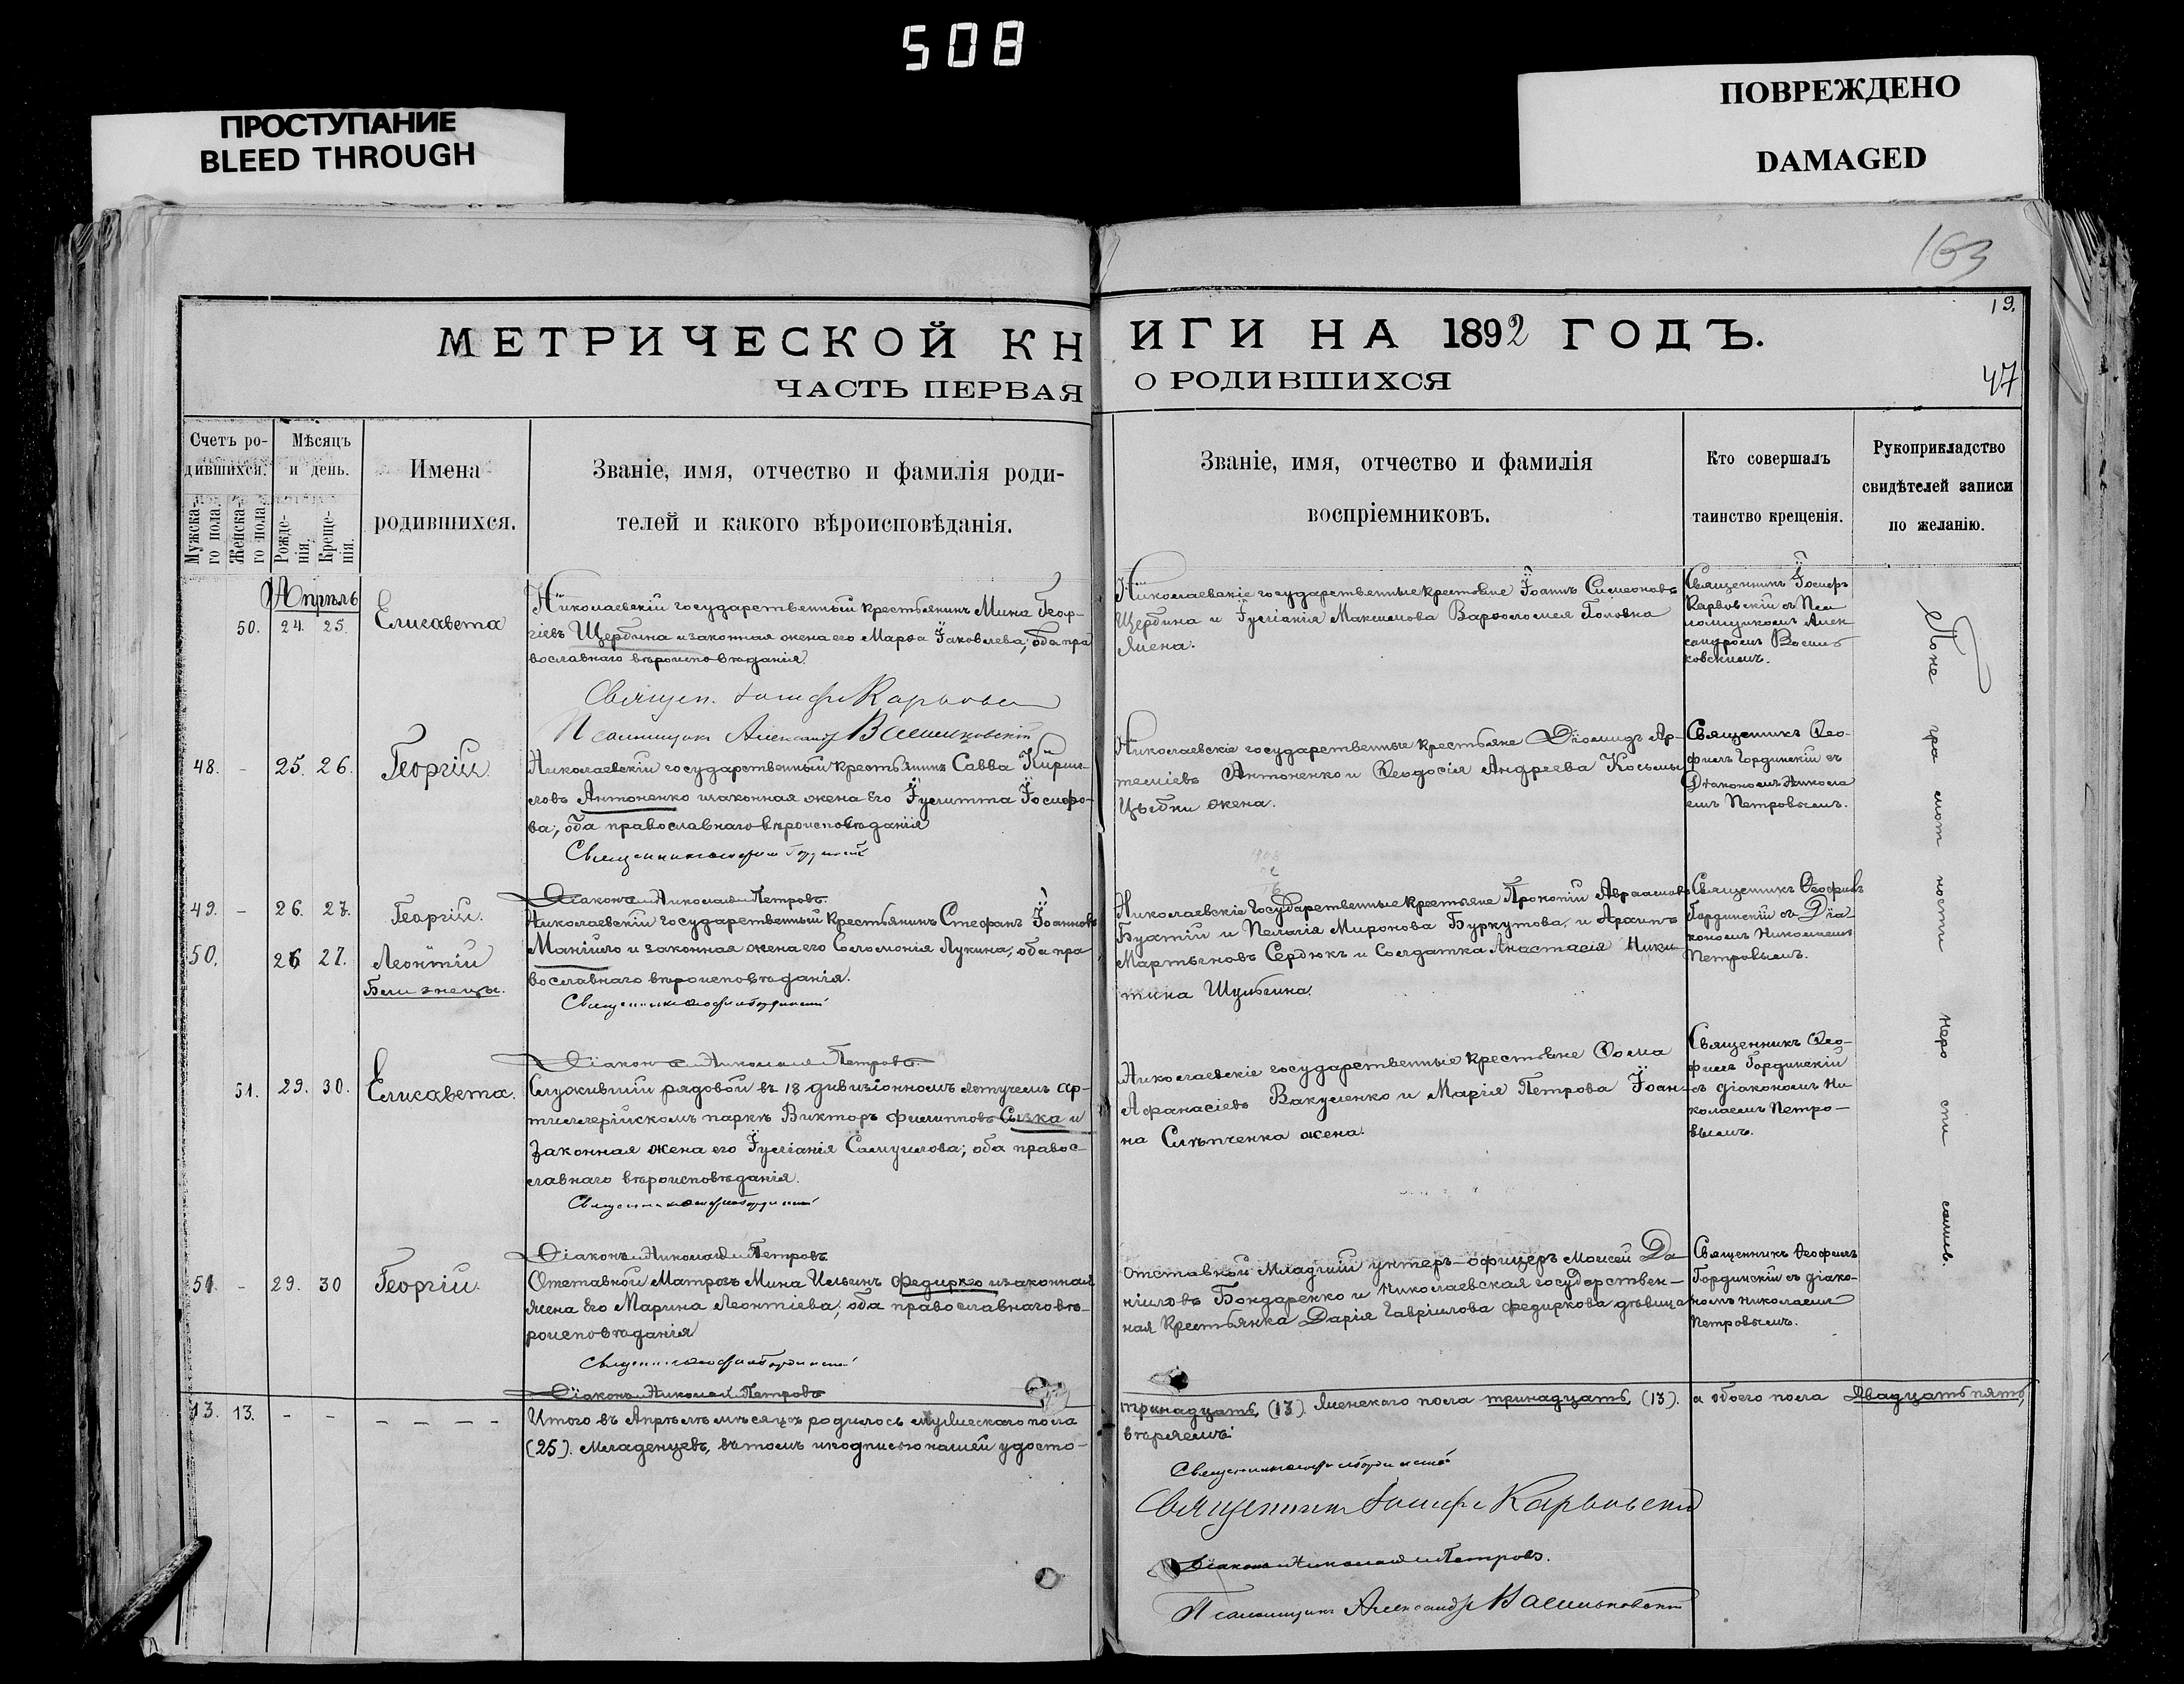 508
ПРОСТУПАНИЕ
BLEED THROUGH
ПОВРЕЖДЕНО
DAMAGED
163
19.
МЕТРИЧЕСКОЙ КНИГИ НА 1892 ГОДЪ.
ЧАСТЬ ПЕРВАЯ О РОДИВШИХСЯ
47
Счетъ ро-
дившихся.
Мужска-
го пола.
Женска-
го пола.
Мѣсяцъ
и день.
Рожде-
нія.
Креще-
нія.
Имена
родившихся.
Званіе, имя, отчество и фамилія роди-
телей и какого вѣроисповѣданія.
Званіе, имя, отчество и фамилія
воспріемниковъ.
Кто совершалъ
таинство крещенія.
Рукоприкладство
свидѣтелей записи
по желанію.
Апрѣль
50. 24. 25. Елисавета
Николаевскій государственный крестьянинъ Мина Геор-
гіевъ Щербина и законная жена его Марѳа Іаковлева; оба пра
вославнаго вѣроисповѣданія.
Священ. Іосифъ Карвовскій
Псаломщикъ Александръ Васильковскій
Николаевскіе государственные крестьяне Іоаннъ Симеоновъ
Щербина и Іуліанія Максимова Варѳоломея Головка
жена.
Священникъ Іосифъ
Карвовскій съ Пса
ломщикомъ Алек
сандромъ Василь
ковскимъ.
48. - 25. 26. Георгій.
Николаевскій государственный крестьянинъ Савва Кирил-
ловъ Антоненко и законная жена Его Іулитта Іосифо-
ва; оба православнаго вѣроисповѣданія
Священникъ Ѳеофилъ Гординскій
Діаконъ Николай Петровъ.
Николаевскіе государственные крестьяне Діомидъ Ар-
теміевъ Антоненко и Ѳеодосія Андреева Косьмы
Цыбки жена.
Священникъ Ѳео-
филъ Гординскій съ
Діакономъ Никола
емъ Петровымъ.
49. - 26. 27. Георгій.
50. 26 27. Леонтій
Близнецы.
Николаевскій государственный крестьянинъ Стефанъ Іоанновъ
Манійло и законная жена его Соломонія Лукина; оба пра
вославнаго вѣроисповѣданія.
Священникъ Ѳеофилъ Гординскій
Діаконъ Николай Петровъ.
Николаевскіе Государственные крестьяне Прокопій Авраамовъ
Бухтій и Пелагія Миронова Буркутова, и Архипъ
Мартыновъ Сердюкъ и Солдатка Анастасія Ники
тина Шульгина.
Священникъ Ѳеофилъ
Гординскій съ Діа
кономъ Николаемъ
Петровымъ.
51. 29. 30. Елисавета.
Служившій рядовой въ 18 дивизіонномъ летучемъ ар-
тиллерійскомъ паркѣ Викторъ Филипповъ Сизка и
законная жена его Іуліанія Самуилова; оба правос-
лавнаго вѣроисповѣданія.
Священникъ Ѳеофилъ Гординскій
Діаконъ Николай Петровъ
Николаевскіе государственные крестьяне Ѳома
Аѳанасіевъ Вакуленко и Марія Петрова Іоан-
на Слѣпченка жена.
Священникъ Ѳео-
филъ Гординскій
съ діакономъ Ни
колаемъ Петро-
вымъ.
51. - 29. 30 Георгій.
Отставной Матросъ Мина Ильинъ Федирко и законная
жена Его Марина Леонтіева; оба православнаго вѣ-
роисповѣданія
Священникъ Ѳеофилъ Гординскій
Діаконъ Николай Петровъ
Отставной Младшій унтеръ-офицеръ Моисей Да-
ніиловъ Бондаренко и Николаевская государствен-
ная Крестьянка Дарія Гавріилова Федиркова дѣвица
Священникъ Ѳеофилъ
Гординскій съ діако-
номъ Николаемъ
Петровымъ.
По не гра мот ности не ро спи сались.
13. 13. - - - - - -
Итого въ Апрѣлѣ мѣсяцѣ родилось мужескаго пола тринадцать (13). Женскаго пола тринадцать (13). а обоего пола двадцать пять,
(25). Младенцевъ, въ томъ и подписью нашей удосто-
вѣряемъ:
Священникъ Ѳеофилъ Гординскій
Священникъ Іосифъ Карвовскій
Діаконъ Николай Петровъ.
Псаломщикъ Александръ Васильковскій